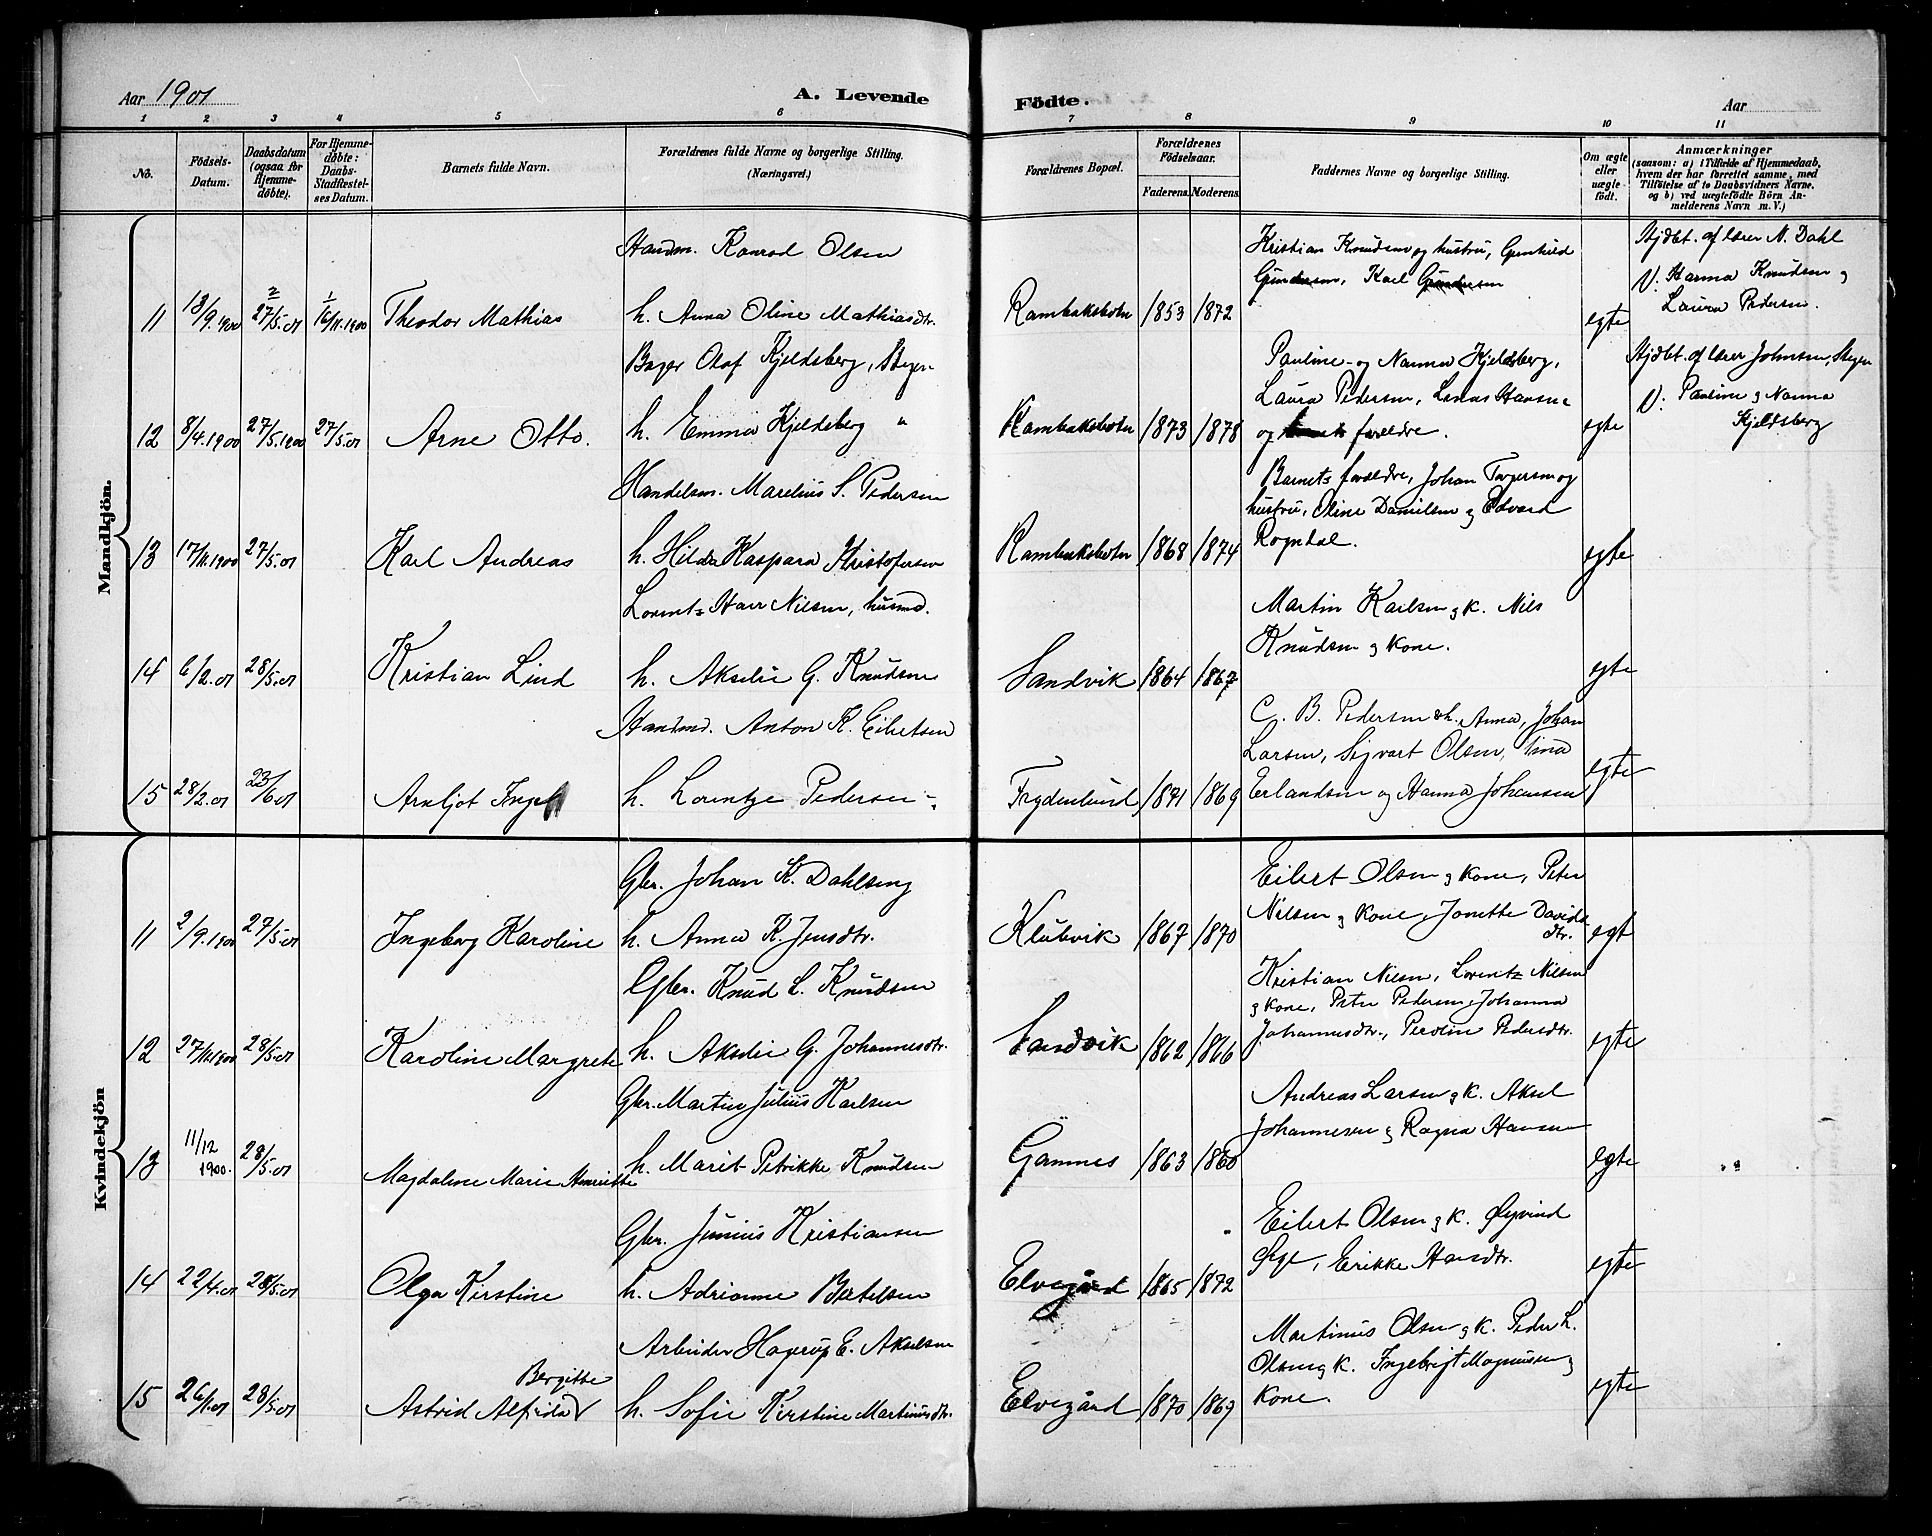 Aar 1901
A. Levende
Födte.
Aar
1 2 3 4 5 6 7 8 9 10 11
No.
Födsels-Datum.
Daabsdatum (ogsaa for Hjemme-döbte).
For Hjemme-döbte: Daabs-Stadfæstel-ses Datum.
Barnets fulde Navn.
Forældrenes fulde Navne og borgerlige Stilling. (Næringsvei.)
Forældrenes Bopæl.
Forældrenes Födselsaar.
Faderens. Moderens.
Faddernes Navne og borgerlige Stilling.
Om ægte eller uægte födt.
Anmærkninger
(saasom: a) i Tilfælde af Hjemmedaab,
hvem der har forrettet samme, med
Tilföielse af to Daabsvidners Navne,
og b) ved uægtefödte Börn An-
melderens Navn m. V.)
Mandkjön.
Handm. Konrad Olsen
Kristian Knudsen og hustru, Gunhild
Gundersen, Karl Gundersen
Hjdbt. af lærer N. Dahl
V. Hanna Knudsen og
Laura Pedersen.
11 13/9.900 2/27/5.01 1/16/11.1900 Theodor Mathias h. Anna Oline Mathiasdtr. Rombaksbotn 1853 1872 egte
Bager Olaf Kjeldsberg, Stegen
Pauline og Nanna Kjeldsberg,
Laura Pedersen, Linus Hansen
Hjdbt. af lærer Johnsen, Stegen
V. Pauline og Nanna
Kjeldsberg
12 8/4.1900 27/5.1900 27/5.01 Arne Otto. h. Emma Kjeldsberg " Rombaksbotn 1873 1878 og forældre. egte
Handelsm. Marelius S. Pedersen
Barnets forældre, Johan Torgersen og
hustru, Oline Danielsen og Edvard
13 17/11.1900 27/5.01 Karl Andreas h. Hilda Kaspara Kristofersen Rombaksbotn 1868 1874 Rogndal. egte
Lorentz Harr Nilsen, husmd.
Martin Karlsen og k. Nils
Knudsen og kone.
14 6/2.01 28/5.01 Kristian Lind h. Akselie G. Knudsen Sandvik 1864 1867 egte
Handmd. Anton K. Eilertsen
C. B. Pedersen & h. Anna, Johan
Larsen, Sigvart Olsen, Tina
15 28/2.01 23/6.01 Arnljot Ingel h. Lorentze Pedersen Frydenlund 1871 1869 Erlandsen og Hanna Johansen egte
Kvindekjön
Gbr. Johan K. Dahlseng
Eilert Olsen og kone, Peter
11 2/9.1900 27/5.01 Ingeborg Karoline h. Anna K. Jensdtr. Klubvik 1867 1870 Nilsen og kone, Jonette Davids
dtr. egt
Gbr. Knud L. Knudsen
Kristian Nilsen, Lorentz Nilsen
og kone, Peter Pedersen, Johanna
12 27/11.1900 28/5.01 Karoline Margrete h. Akselie G. Johannesdtr. Sandvik 1862 1866 Johannesdtr., Peroline Pedersdtr. egte
Gbr. Martin Julius Karlsen
Andreas Larsen og k. Aksel
Johannesen og Ragna Hansen
13 11/12 1900. 28/5.01 Magdalene Marie Henriette h. Marit Petrikke Knudsen Gamnes 1863 1860 egte "
Gbr. Junius Kristiansen
Eilert Olsen og k. Øyvind
14 22/4.01 28/5.01 Olga Kirstine h. Adrianne Bertelsen Elvegård 1865 1872 Sye, Erikke Hansdtr. egte
Arbeider Hagerup E. Akselsen
Martinus Olsen og k. Peder L.
Olsen og k. Ingebrigt Magnussen og
Bergitte
15 26/1.01 28/5.01 Astrid Alfrida h. Sofie Kirstine Martinusdtr. Elvegård 1870 1869 kone. egte